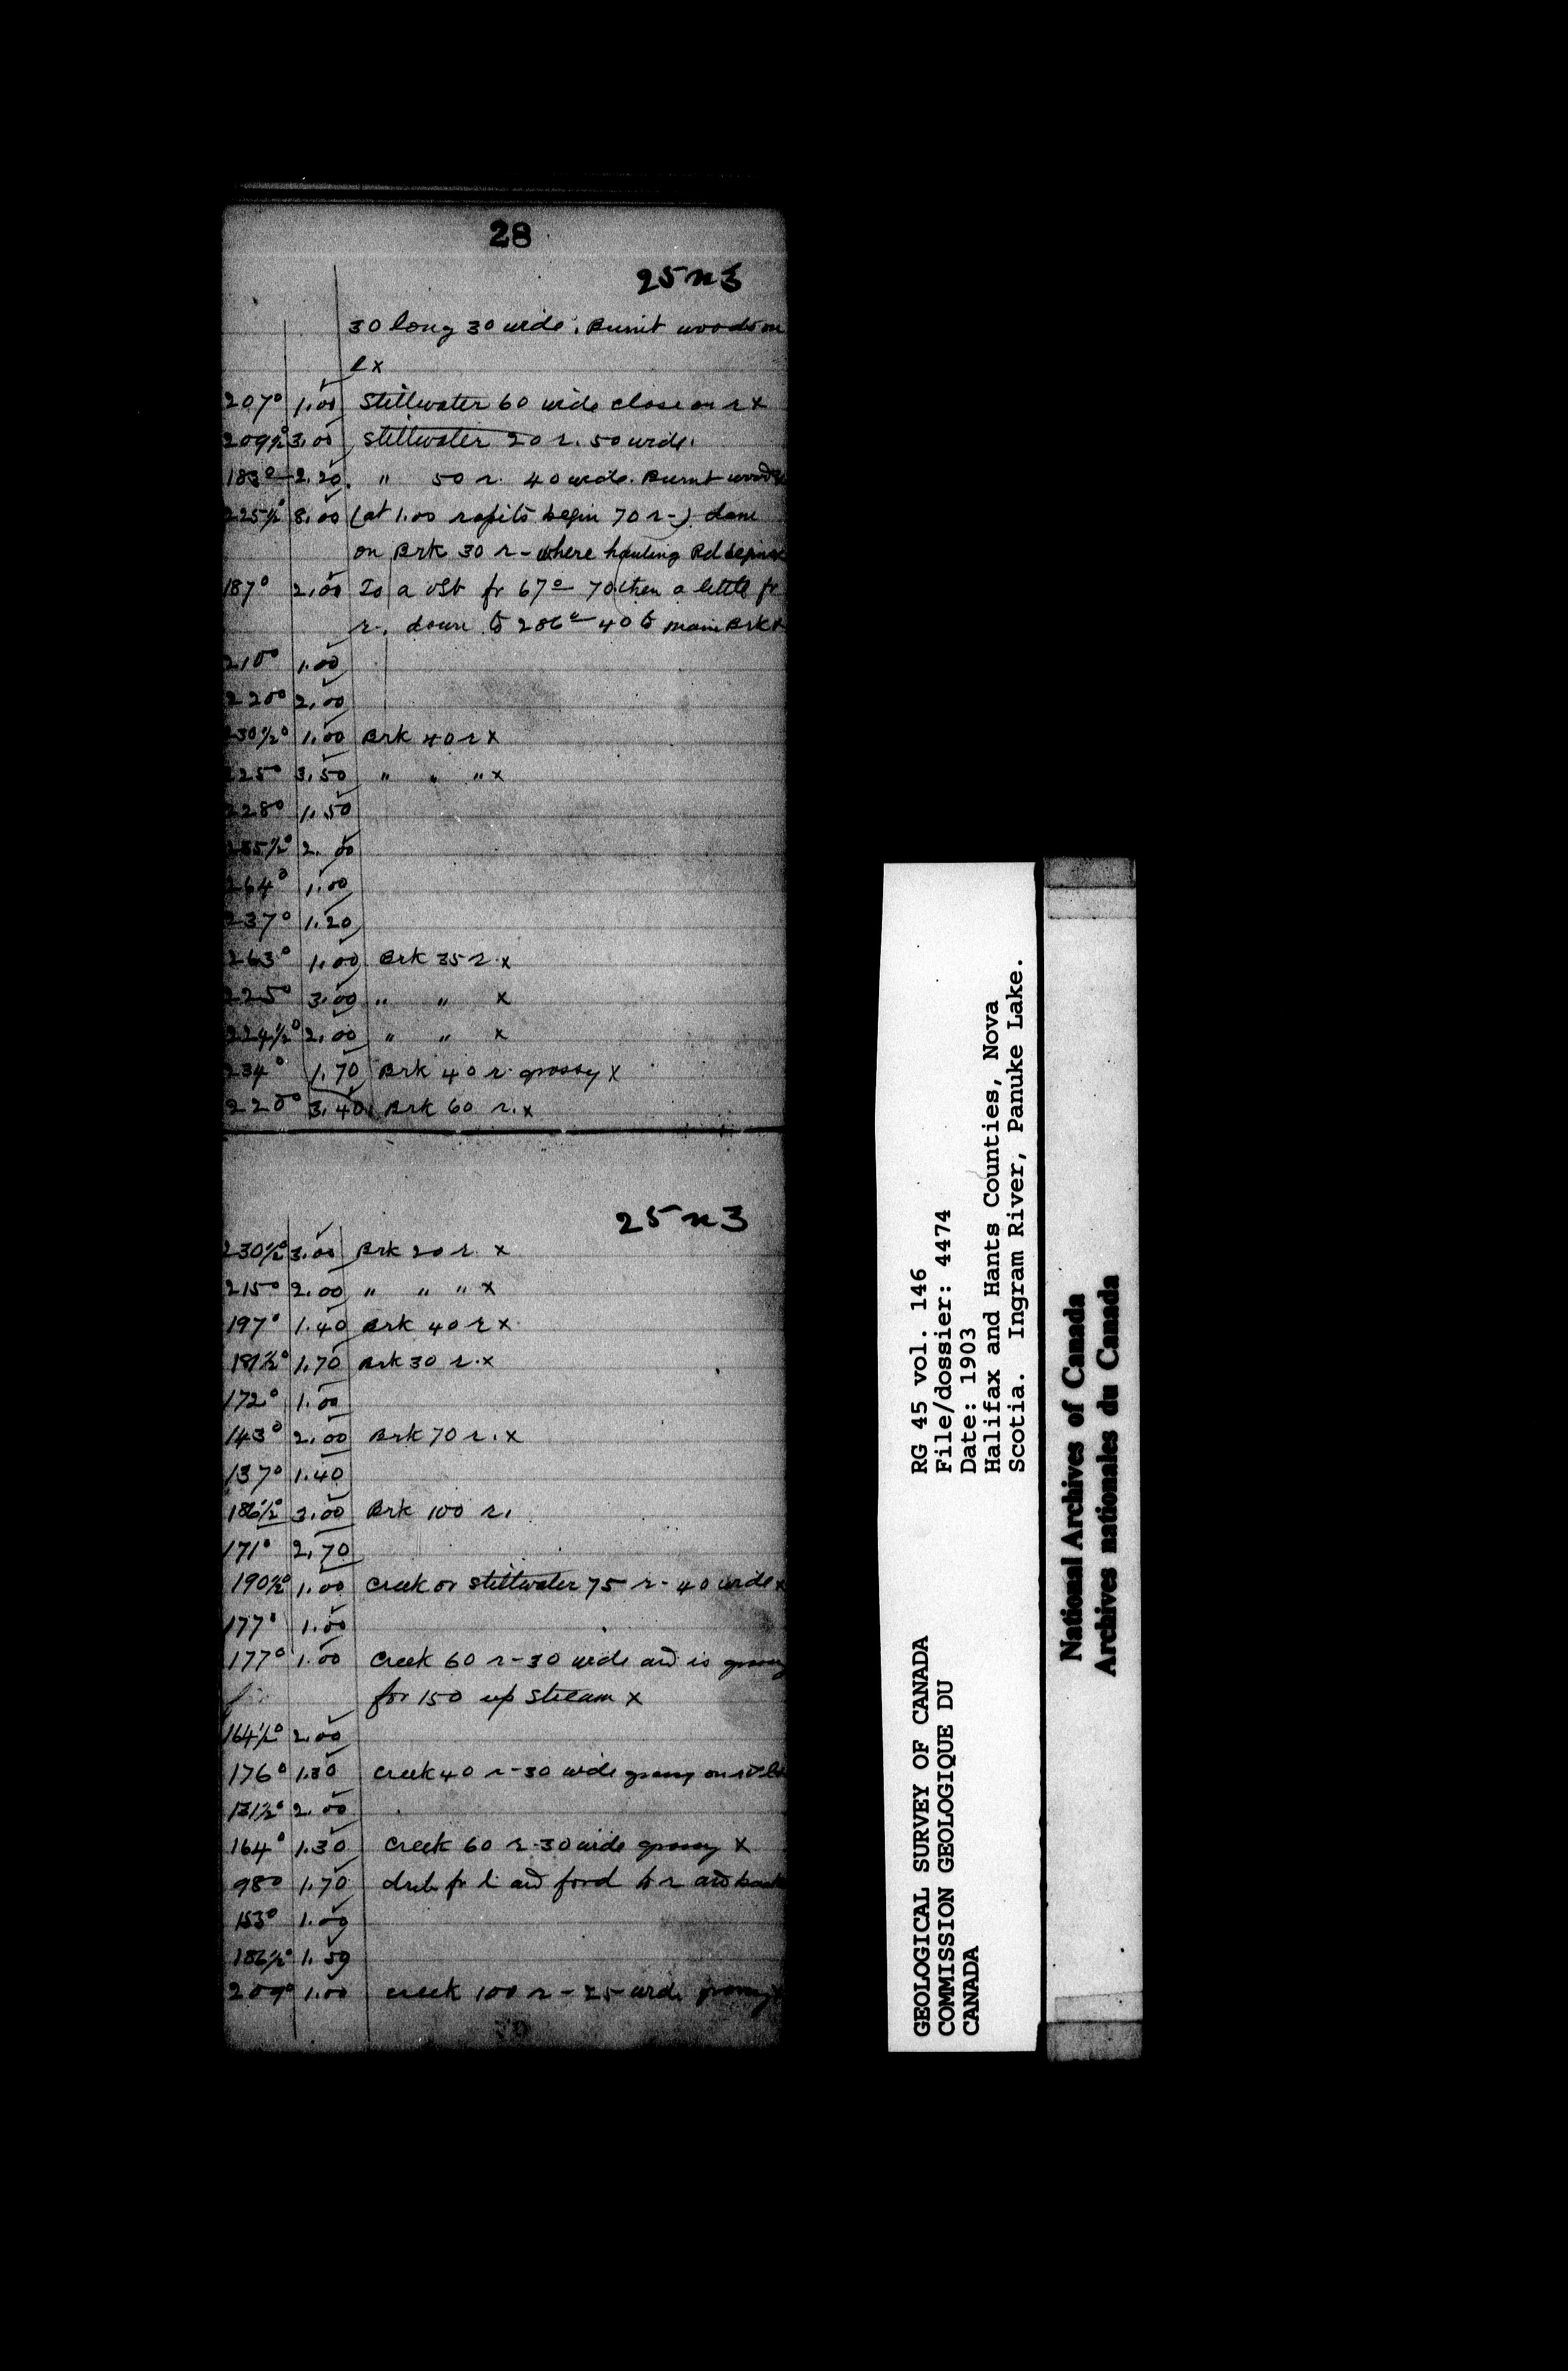 28
25 n 3
30 long 30 wide. Burnt woods on
l x
207° 1.00 Stillwater 60 wide close on r x
209½° 3.00 Stillwater 20 r. 50 wide.
183° 2.20 " 50 r. 40 wide. Burnt woods
225½° 8.00 (at 1.00 rapids begin 70 r-) dam
on Brk 30 r - where hauling Rd
187° 2.00 To a fr 67° - 70 then a little fr
r. down to 286° - 40 to main Brk x
210° 1.00
220° 2.00
230½° 1.00 Brk 40 r x
225° 3.50 " " " x
228° 1.50
2. 00
264° 1.00
237° 1.20
263° 1.00 Brk 35 r. x
225° 3.00 " " x
224½° 2.00 " " x
234° 1.70 Brk 40 r. grassy x
220° 3.40 Brk 60 r. x
25 n 3
230½° 3.00 Brk 20 r. x
215° 2.00 " " " x
197° 1.40 Brk 40 r x
191½° 1.70 Brk 30 r. x
172° 1.00
143° 2.00 Brk 70 r. x
137° 1.40
186½° 3.00 Brk 100 r.
171° 2.70
190½° 1.00 Creek or stillwater 75 r - 40 wide x
177° 1.00
177° 1.00 Creek 60 r - 30 wide and is grassy
for 150 up stream x
164½° 2.00
176° 1.30 Creek 40 r - 30 wide grassy on
131½° 2.00
164° 1.30 Creek 60 r - 30 wide grassy x
98° 1.70 fr l and ford to r and back
153° 1.00
186½° 1.50
209° 1.00 creek 100 r - 25 wide grassy x
GEOLOGICAL SURVEY OF CANADA
COMMISSION GEOLOGIQUE DU
CANADA
RG 45 vol. 146
File/dossier: 4474
Date: 1903
Halifax and Hants Counties, Nova
Scotia. Ingram River, Panuke Lake.
National Archives of Canada
Archives nationales du Canada